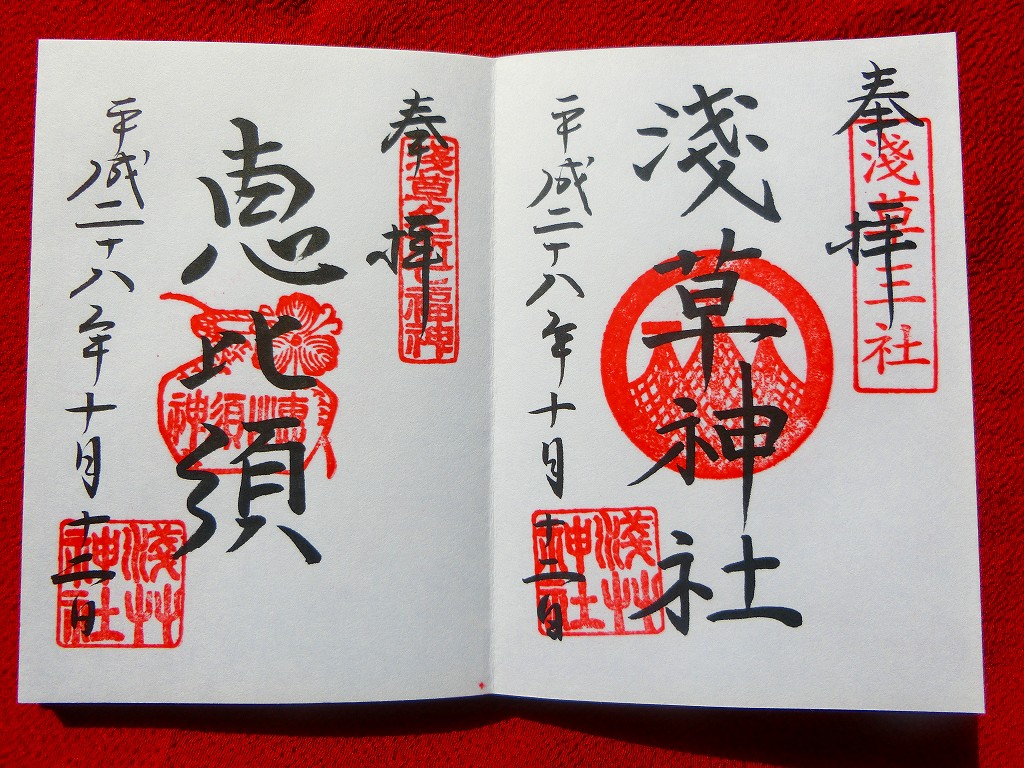 奉拝
淺草三社
淺草神社
平成二十八年十月十二日
淺艸神社
奉拝
浅草名所七福神
恵比須
恵比須神
平成二十八年十月十二日
淺艸神社